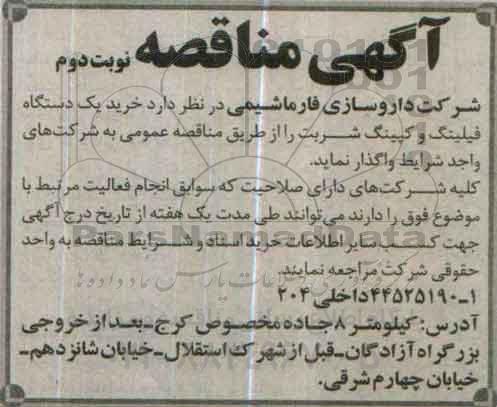 آگهی مناقصه نوبت دوم
شرکت داروسازی فارماشیمی در نظر دارد خرید یک دستگاه
فیلینگ و کپینگ شربت را از طریق مناقصه عمومی به شرکت‌های
واجد شرایط واگذار نماید.
کلیه شرکت‌های دارای صلاحیت که سوابق انجام فعالیت مرتبط با
موضوع فوق را دارند می‌توانند طی مدت یک هفته از تاریخ درج آگهی
جهت کسب سایر اطلاعات خرید اسناد و شرایط مناقصه به واحد
حقوقی شرکت مراجعه نمایند.
۱-۴۴۵۲۵۱۹۰ داخلی ۲۰۴
آدرس: کیلومتر ۸ جاده مخصوص کرج-بعد از خروجی
بزرگراه آزادگان-قبل از شهرک استقلال-خیابان شانزدهم-
خیابان چهارم شرقی.
ParsNamadData